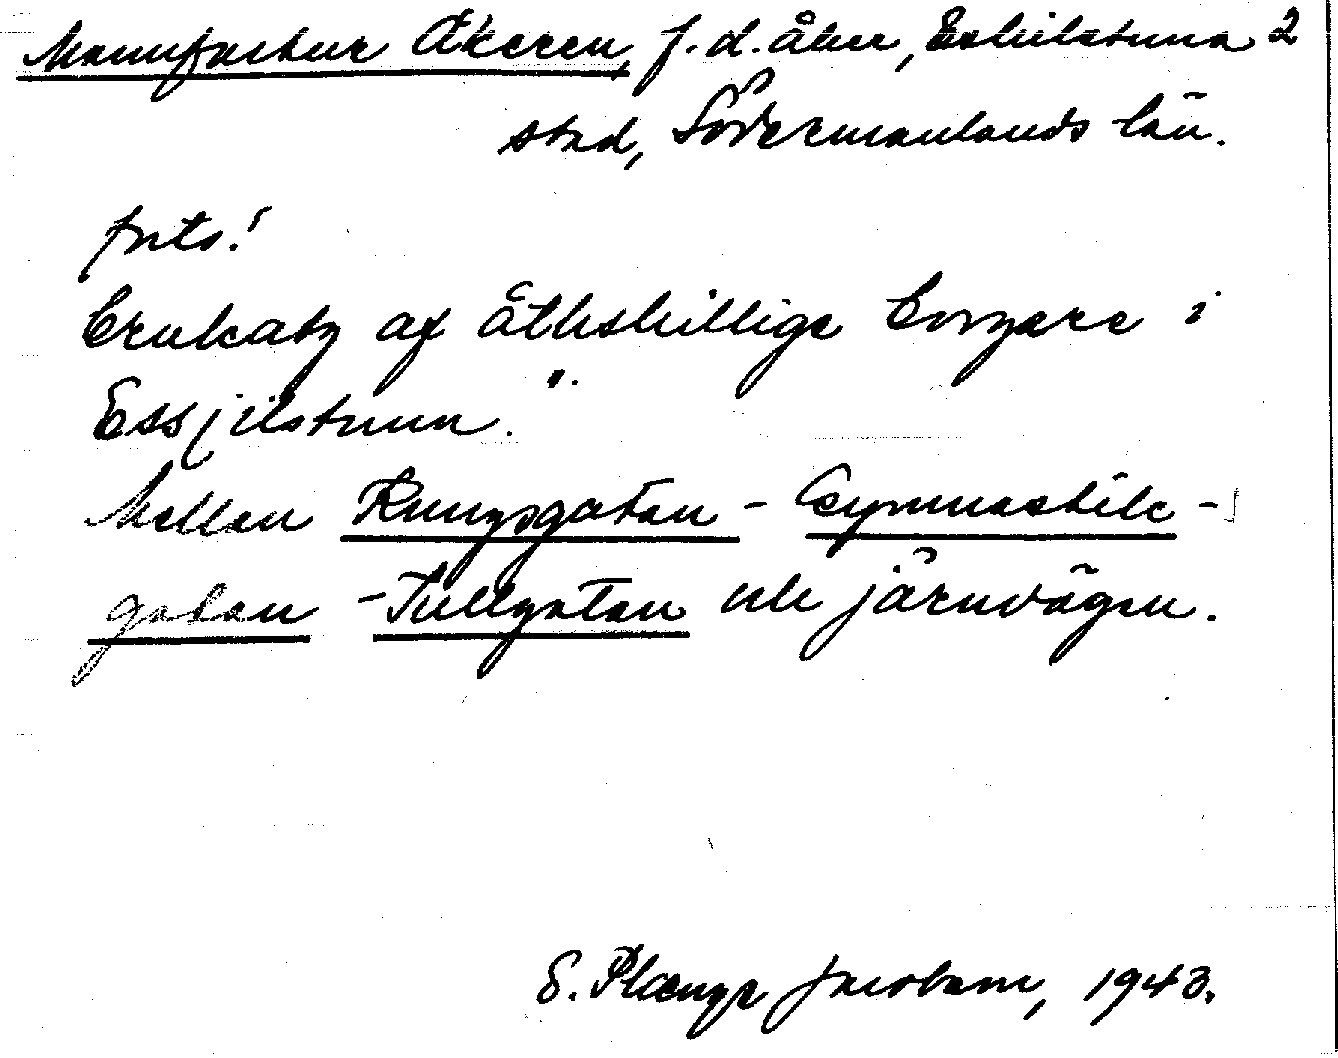 Manufactur Åkeren, f.d. åker, Eskilstuna 2
stad, Södermanlands län.
forts.!
brukats af åtkskillige borgare i
Essjilstuna.".
Mellan Kungsgatan - Gymnastik-
gatan - Tullgatan och järnvägen.
S. Plænge Jacobson, 1943.